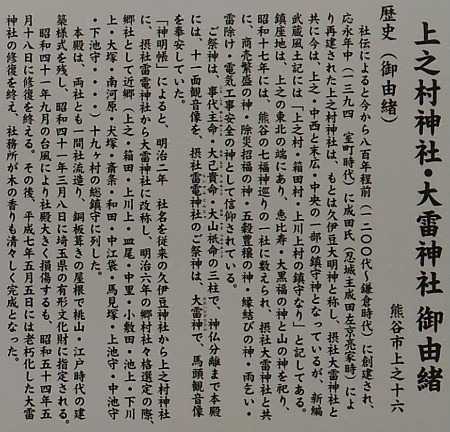 上之村神社・大雷神社 御由緒
熊谷市上之十六
歴史（御由緒）
社伝によると今から八百年程前（一二〇〇代〜鎌倉時代）に創建され、
応永年中（一三九四 室町時代）に成田氏（忍城主成田左京亮家時）によ
り再建された上之村神社は、もとは久伊豆大明神と称し、摂社大雷神社と
共に今は、上之・中西と末広・中央の一部の鎮守神となっているが、新編
武蔵風土記には「上之村・箱田村・上川上村の鎮守なり」と記してある。
鎮座地は、上之の東北の端にあり、恵比寿・大黒福の神と山の神を祀り、
昭和十七年には、熊谷の七福神巡りの一社に数えられ、摂社大雷神社と共
に、商売繁盛の神・除災招福の神・五穀豊穣の神・縁結びの神・雨乞い・
雷除け・電気工事安全の神として信仰されている。
ご祭神は、事代主命・大己貴命・大山祇命の三柱で、神仏分離まで本殿
には、十一面観音像を、摂社大雷神社のご祭神は、大雷神で、馬頭観音像
を奉安していた。
「神明帳」によると、明治二年 社名を従来の久伊豆神社から上之村神社
に、摂社雷電神社から大雷神社に改称し、明治六年の郷村社々格選定の際、
郷社として（上之・箱田・上川上・皿尾・中里・小敷田・池上・下川
上・大塚・南河原・犬塚・斎条・和田・中江袋・馬見塚・上池守・中池守
・下池守・・・・）十九ヶ村の総鎮守に列した。
本殿は、両社とも一間社流造り、銅板葺きの屋根で桃山・江戸時代の建
築様式を残し、昭和四十一年三月八日に埼玉県の有形文化財に指定される。
昭和四十一年九月の台風により社殿大きく損傷するも、昭和五十四年五
月十八日に修復を終える。その後、平成七年五月五日には老朽化した大雷
神社の修復を終え、社務所が木の香りも清々しく完成となった。